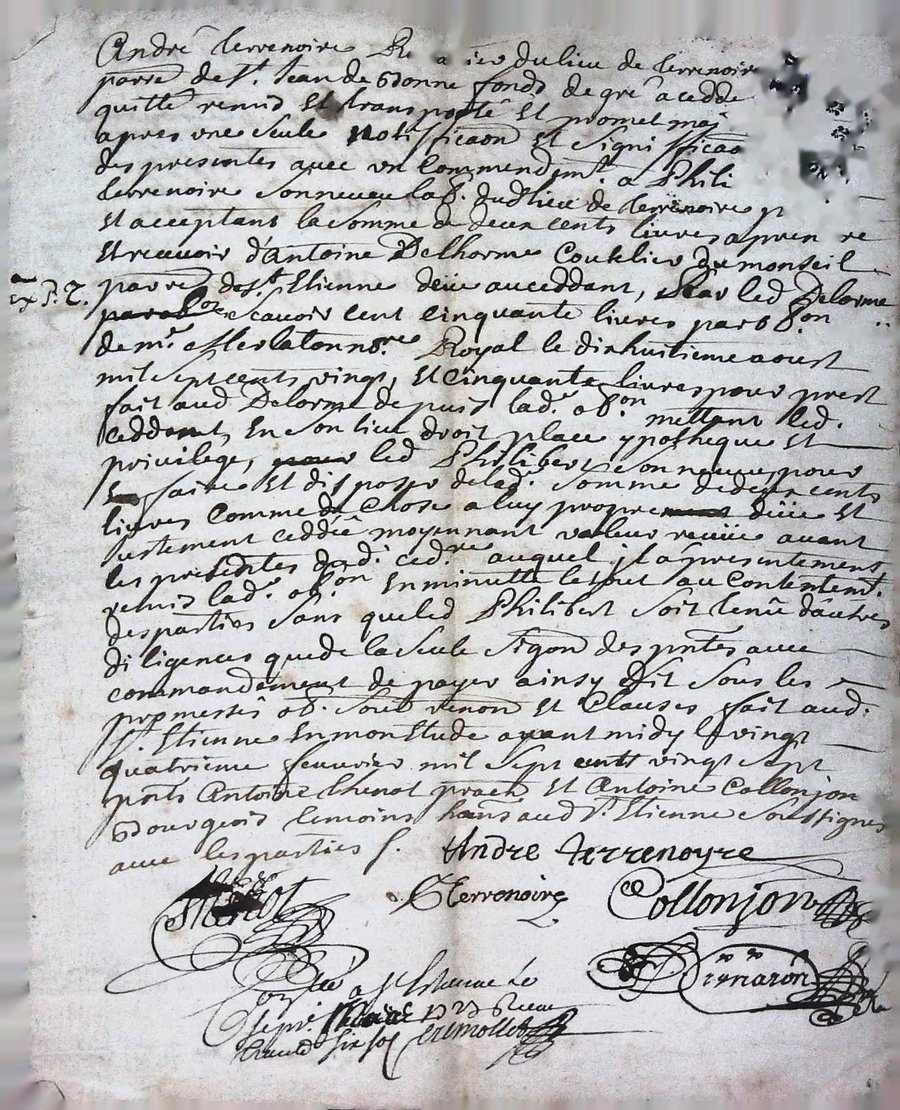 André Terrenoire du lieu de Terrenoire
parre de St. Jean de Bonne fonds de gré a cedde
quitté remis Et transporté Et promet
apres une seule notifficaon Et Signifficaon
des presentes avec un commendemt. a Phili
Terrenoire Son neveu lab. dud lieu de Terrenoire
Et acceptant la somme de deux cents livres a pren re
Et recevoir d'Antoine Delhorme Coutelier du monseil
parre de St. Etienne deüe au ceddant, par led Delorme
Scavoir cent cinquante livres par obbon
de me. Merlat nore Royal le dixhuitieme aoust
mil sept cents vingt, Et cinquante livres pour prest
fait aud Delorme depuis lad. obon mettant led.
ceddant, En Son lieu droit place ypotheque Et
privilege, led Philibert Son neveu, pour
En faire Et disposer de lad. Somme de deux cents
livres comme de chose a luy propre deüe Et
justement ceddée moyennant valleur receüe avant
les presentes dud. cedre auquel jl a presentement
remis lad. obon En minutte le tout au Contentemt.
des parties Sans que led Philibert Soit tenu dautres
diligences que de la Seule Sigon des pntes avec
commandement de payer ainsy Sous les
promesses ob. Soub. renon Et Clauses fait aud.
St. Etienne En mon Etude avant midy le vingt
quatrieme feuvrier mil sept cent vingt sept
pnts Antoine Thenot praen Et Antoine Collonjon
Bourgeois temoins hants aud St. Etienne Soussignes
avec les parties /.
André Terrenoyre
Thenot
Terrenoire
Collonjon
a St Etienne le
1727 Receu